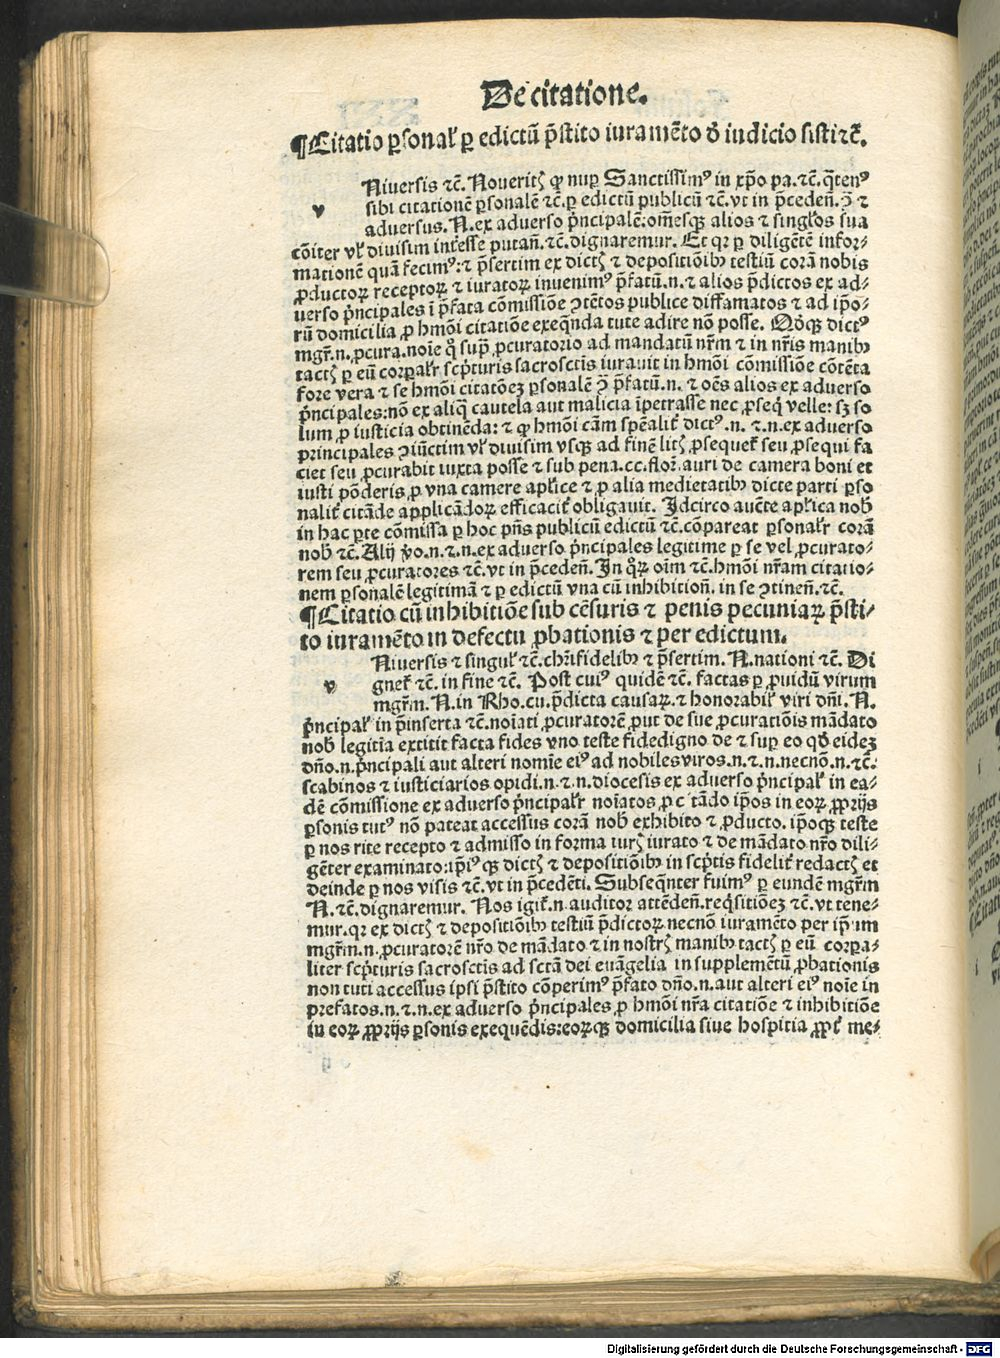 De citatione.
¶Citatio ꝑsonal̕ ꝑ edictū p̄stito iuramēto ď iudicio sisti ⁊c̄.
Niuersis ⁊c̄. Noueritꝭ ꝙ nuꝑ Sanctissimꝰ in xp̄o pa.⁊c̄. q̄tenꝰ
v
sibi citationē ꝑsonalē ⁊c̄. ꝑ edictū publicū ⁊c̄. vt in p̄ceden̄. ↄ̄ ⁊
aduersus. N. ex aduerso p̄ncipalē: om̄esqꝫ alios ⁊ singl̕os sua
cōiter vl̕ diuisim int̄esse putan̄. ⁊c̄. dignaremur. Et qꝛ ꝑ diligētē infor-
mationē quā fecimꝰ: ⁊ p̄sertim ex dictꝭ ⁊ depositiōibꝫ testiū corā nobis
ꝓductoꝝ receptoꝝ ⁊ iuratoꝝ inuenimꝰ p̄fatū. n. ⁊ alios p̄dictos ex ad-
uerso p̄ncipales ī p̄fata cōmissiōe ↄ̄tētos publice diffamatos ⁊ ad ip̄o-
rū domicilia ꝓ hmōi citatiōe exeq̄nda tute adire nō posse. Qd̕qꝫ dictꝰ
mgr̄. n. ꝓcura. noīe qͦ supᷓ ꝓcuratorio ad mandatū nr̄m ⁊ in nr̄is manibꝫ
tactꝭ ꝑ eū corꝑalr̕ scp̄turis sacrosctīs iurauit in hmōi cōmissiōe cōtēta
fore vera ⁊ se hmōi citatōeꝫ ꝑsonalē ↄ̄ p̄fatū. n. ⁊ oēs alios ex aduerso
p̄ncipales: nō ex aliq̄ cautela aut malicia īpetrasse nec ꝓseq̄ velle: sꝫ so
lum ꝓ iusticia obtinēda: ⁊ ꝙ hmōi cām spēalit̕ dictꝰ. n. ⁊. n. ex aduerso
principales ↄiūctim vl̕ diuisim vsqꝫ ad finē litꝭ ꝓsequet̕ seu ꝓsequi fa
ciet seu ꝓcurabit iuxta posse ⁊ sub pena. cc. flor̄. auri de camera boni et
iusti pōderis ꝓ vna camere apl̕ice ⁊ ꝓ alia medietatibꝫ dicte parti ꝑso
nalit̕ citāde applicādoꝝ efficacit̕ obligauit. Idcirco auc̄te apl̕ica nob̕
in hac ꝑte cōmissa ꝑ hoc pn̄s publicū edictū ⁊c̄. cōpareat ꝑsonalr̕ corā
nob̕ ⁊c̄. Alij v̕o. n. ⁊. n. ex aduerso p̄ncipales legitime ꝑ se vel ꝓcurato-
rem seu ꝓcuratores ⁊c̄. vt in p̄ceden̄. In qͦꝝ oīm ⁊c̄. hmōi nr̄am citatio-
nem ꝑsonalē legitimā ⁊ ꝑ edictū vna cū inhibition̄. in se ↄ̄tinen̄. ⁊c̄.
¶Citatio cū inhibitiōe sub cēsuris ⁊ penis pecuniaꝝ p̄sti-
to iuramēto in defectu ꝓbationis ⁊ per edictum.
Niuersis ⁊ singul̕ ⁊c̄. chr̄ifidelibꝫ ⁊ p̄sertim. N. nationi ⁊c̄. Di
v
gnet̕ ⁊c̄. in fine ⁊c̄. Post cuiꝰ quidē ⁊c̄. factas ꝑ ꝓuidū virum
mgr̄m. N. in Rho. cu. p̄dicta causaꝝ. ⁊ honorabil̕ viri dn̄i. N.
p̄ncipal̕ in p̄inserta ⁊c̄. noīati ꝓcuratorē ꝓut de sue ꝓcuratiōis mādato
nob̕ legitīa extitit facta fides vno teste fidedigno de ⁊ suꝑ eo qd̕ eideꝫ
dn̄o. n. p̄ncipali aut alteri nomīe eiꝰ ad nobiles viros. n. ⁊. n. necnō. n. ⁊c̄.
scabinos ⁊ iusticiarios opidi. n. ⁊. n. diocesis ex aduerso p̄ncipal̕ in ea-
dē cōmissione ex aduerso p̄ncipalr̕ noīatos ꝓ c tādo ip̄os in eoꝝ ꝓprijs
ꝑsonis tutꝰ nō pateat accessus corā nob̕ exhibito ⁊ ꝓducto. ip̄oqꝫ teste
ꝑ nos rite recepto ⁊ admisso in forma iurꝭ iurato ⁊ de mādato nr̄o dili-
gēter examinato: ip̄iꝰ qꝫ dictꝭ ⁊ depositiōibꝫ in scp̄tis fidelit̕ redactꝭ et
deinde ꝑ nos visis ⁊c̄. vt in p̄cedēti. Subseq̄nter fuimꝰ ꝑ eundē mgr̄m
N. ⁊c̄. dignaremur. Nos igit̕. n. auditor attēden̄. reqͥsitiōeꝫ ⁊c̄. vt tene-
mur. qꝛ ex dictꝭ ⁊ depositiōibꝫ testiū p̄dictoꝝ necnō iuramēto per ip̄um
mgr̄m. n. ꝓcuratorē nr̄o de mādato ⁊ in nostrꝭ manibꝫ tactꝭ ꝑ eū corꝑa-
liter scp̄turis sacrosctīs ad sctā dei euāgelia in supplemētū ꝓbationis
non tuti accessus ipsi p̄stito cōperimꝰ p̄fato dn̄o. n. aut alteri eiꝰ noīe in
prefatos. n. ⁊. n. ex aduerso p̄ncipales ꝑ hmōi nr̄a citatiōe ⁊ inhibitiōe
in eoꝝ ꝓprijs ꝑsonis exequēdis: eoꝝqꝫ domicilia siue hospitia ꝓpt̕ me-
Digitalisierung gefördert durch die Deutsche Forschungsgemeinschaft - DFG